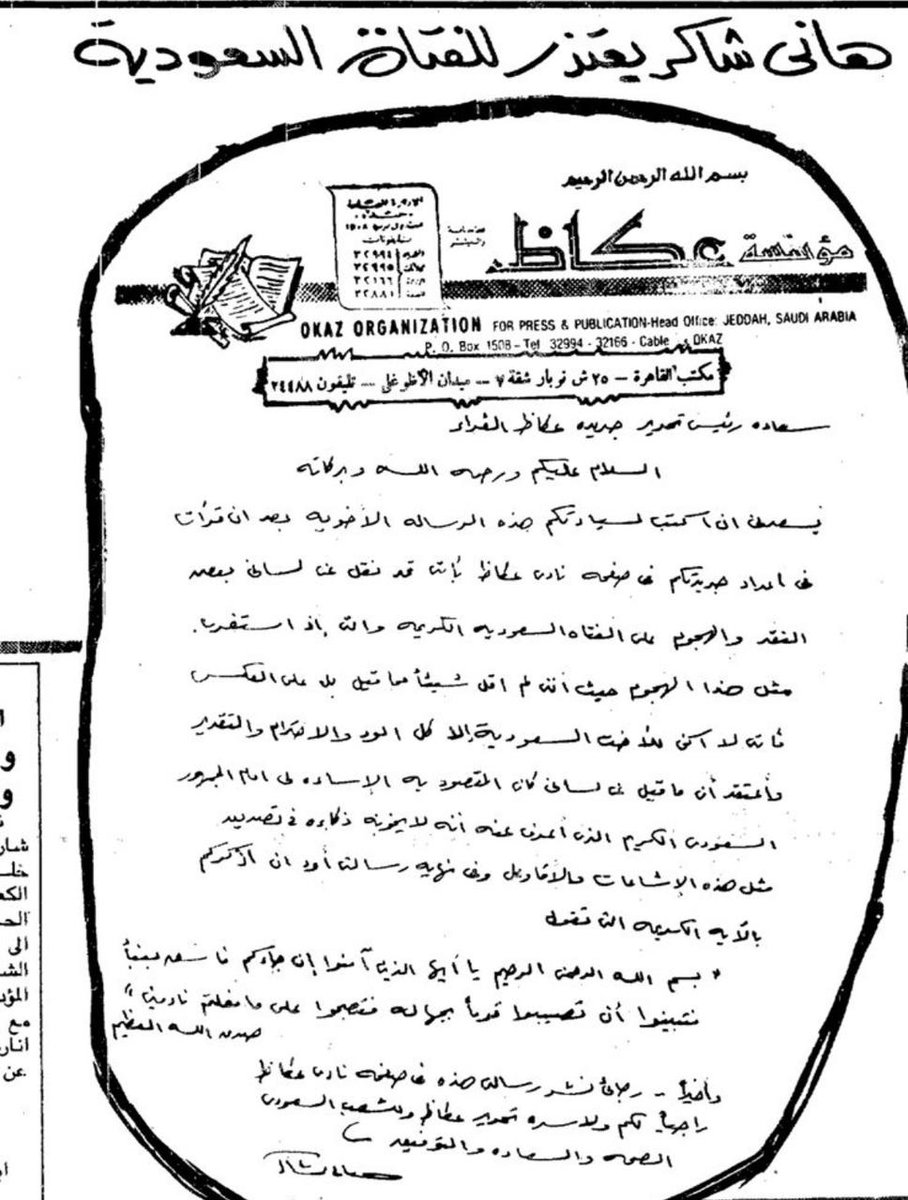 هانى شاكر يعتذر للفتاة السعودية
بسم الله الرحمن الرحيم
مؤسسة عكاظ
للصحافة والنشر
٣٢٩٩٤
٣٢٩٩٥
٣٢١٦٦
٣٢٨٨١
OKAZ ORGANIZATION FOR PRESS & PUBLICATION-Head Office: JEDDAH, SAUDI ARABIA
P. O. Box 1508 - Tel 32994 - 32166 - Cable OKAZ
مكتب القاهرة - ٢٥ ش نوبار شقة ٧ -- ميدان الاظوغلى -- تليفون ٢٤٤٨٨
سعاده رئيس تحرير جريده عكاظ الغراء
السلام عليكم ورحمه الله وبركاته
يسعدنى ان اكتب لسيادتكم هذه الرساله الأخويه بعد ان قرأت
فى اعداد جريدتكم فى صفحه نادى عكاظ بأنه قد نقل عن لسانى بعض
النقد والهجوم على الفتاه السعوديه الكريمه وانى إذ استغرب
مثل هذا الهجوم حيث أننى لم اقل شيئاً مما قيل بل على العكس
فأنى لا اكن للأخت السعودية إلا كل الود والاحترام والتقدير
وأعتقد أن ما قيل عن لسانى كان المقصود به الإساءه لى امام الجمهور
السعودى الكريم الذى أعرف عنه أنه لا يخونه ذكاءه فى تصديق
مثل هذه الإشاعات والأقاويل وفى نهايه رسالتى أود ان أذكركم
بالآيه الكريمه التى تقول
" بسم الله الرحمن الرحيم يا أيها الذين آمنوا إن جاءكم فاسق بنبأ
فتبينوا أن تصيبوا قوماً بجهاله فتصبحوا على ما فعلتم نادمين "
صدق الله العظيم
وأخيراً - رجائى نشر رسالتى هذه فى صفحه نادى عكاظ
راجياً لكم ولاسره تحرير عكاظ وللشعب السعودى
الصحه والسعاده والتوفيق
هانى شاكر